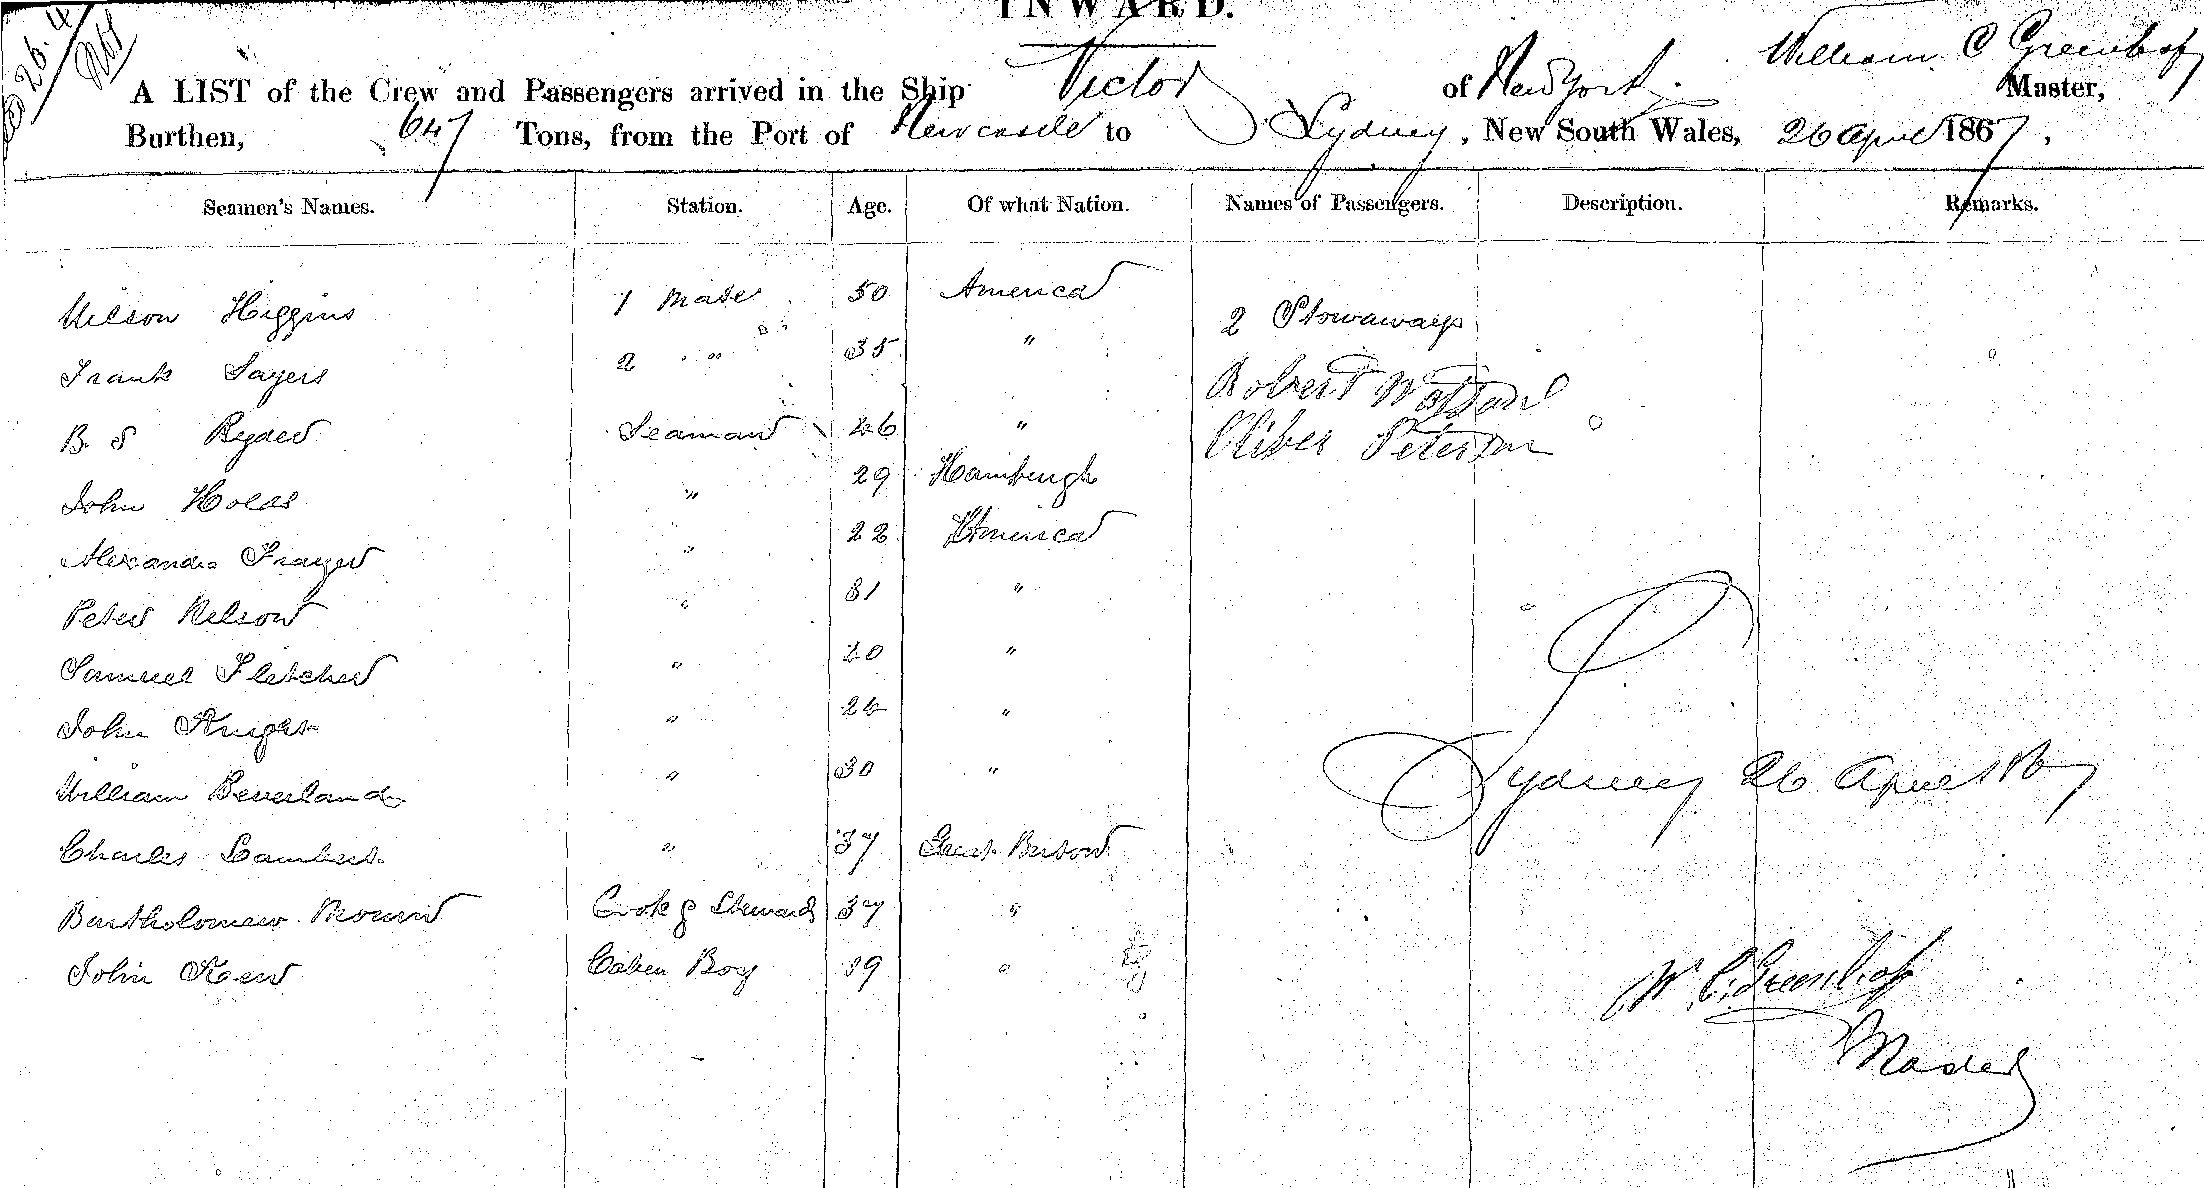 INWARD.
26.4
A LIST of the Crew and Passengers arrived in the Ship Victor of New York. William C Master,
Burthen, 647 Tons, from the Port of Newcastle to Sydney, New South Wales, 26 April 1867.
Seamen's Names. Station. Age. Of what Nation. Names of Passengers. Description. Remarks.
Wilson Higgins 1 Mate 50 America
2 Stowaways
Frank Sayers 2 " 35 "
Robert Watson
B. S Ryder Seaman 46 "
Oliver Peterson
John 29 Hamburgh
Alexander Frazer " 22 America
Peter Nelson " 31 "
Samuel Fletcher " 20 "
John Knight " "
William Beverland " 30 "
Sydney 26 April 1867
Charles Lambert " 37 Great Britain
Bartholomew Cook & Steward 37 "
John Kew Caben Boy 19 "
W. C.
Master